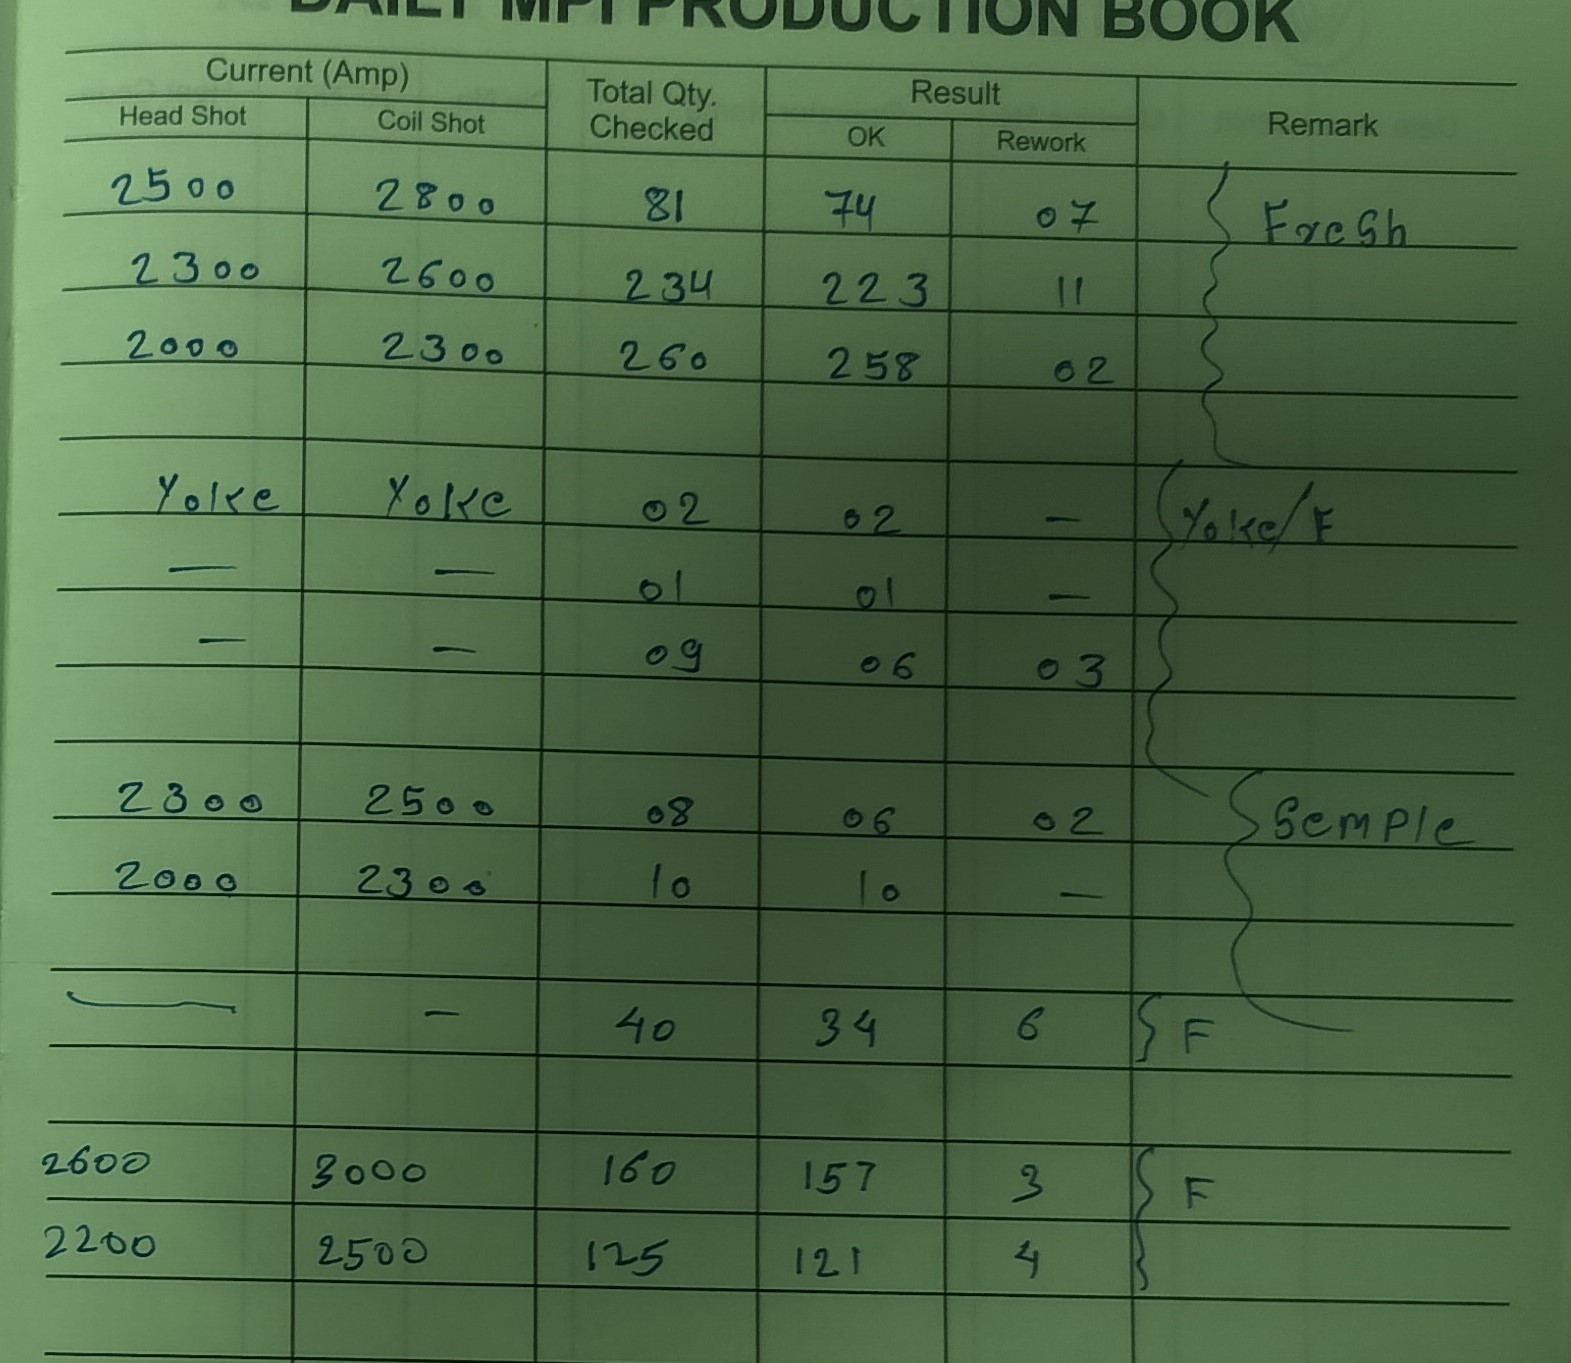 DAILY MPI PRODUCTION BOOK
Current (Amp) Total Qty. Checked Result Remark
Head Shot Coil Shot OK Rework
2500 2800 81 74 07 Fresh
2300 2600 234 223 11
2000 2300 260 258 02
Yoke Yoke 02 02 — Yoke/F
— — 01 01 —
— — 09 06 03
2300 2500 08 06 02 Semple
2000 2300 10 10 —
— — 40 34 6 F
2600 3000 160 157 3 F
2200 2500 125 121 4